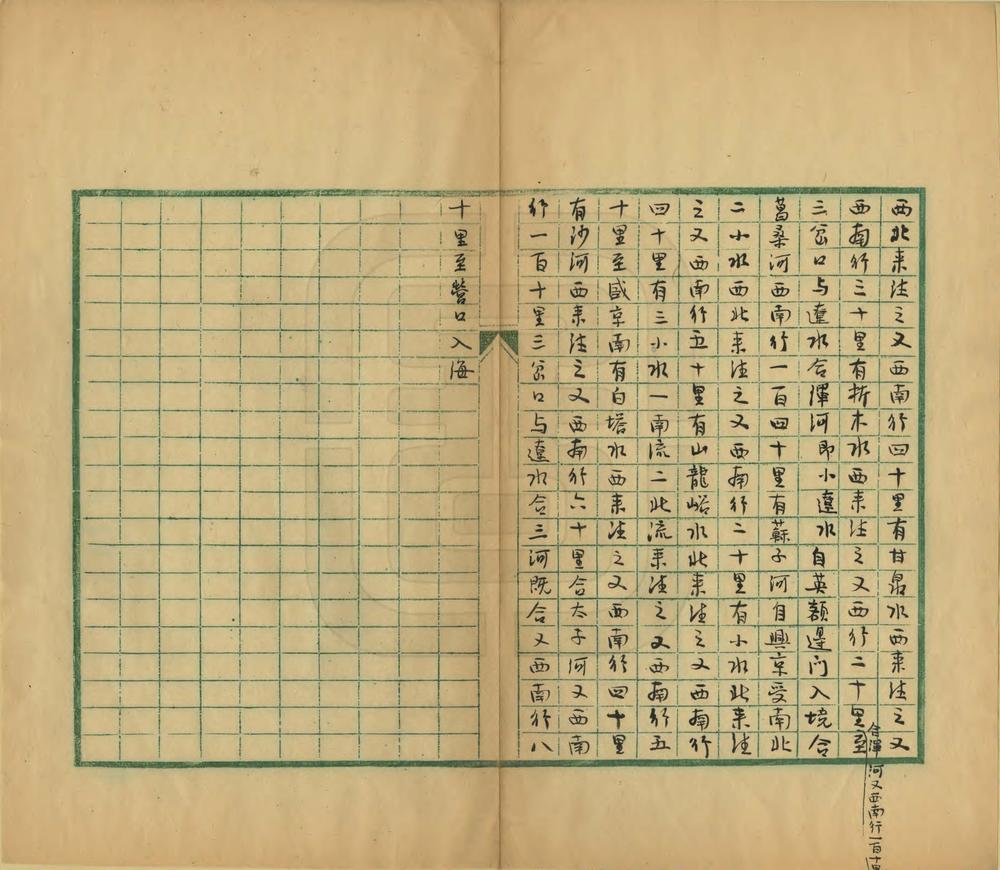 西北来注之又西南行四十里有甘泉水西来注之又
西南行三十里有折木水西来注之又西行二十里至
合渾河又西南行一百十里
三岔口与遼水合渾河即小遼水自英額邊门入境合
菖桑河西南行一百四十里有蘇子河自興京受南北
二小水西北来注之又西南行二十里有小水北来注
之又西南行五十里有山龍峪水北来注之又西南行
四十里有三小水一南流二北流来注之又西南行五
十里至盛京南有白塔水西来注之又西南行四十里
有沙河西来注之又西南行六十里合太子河又西南
行一百十里三岔口与遼水合三河既合又西南行八
十里至營口入海